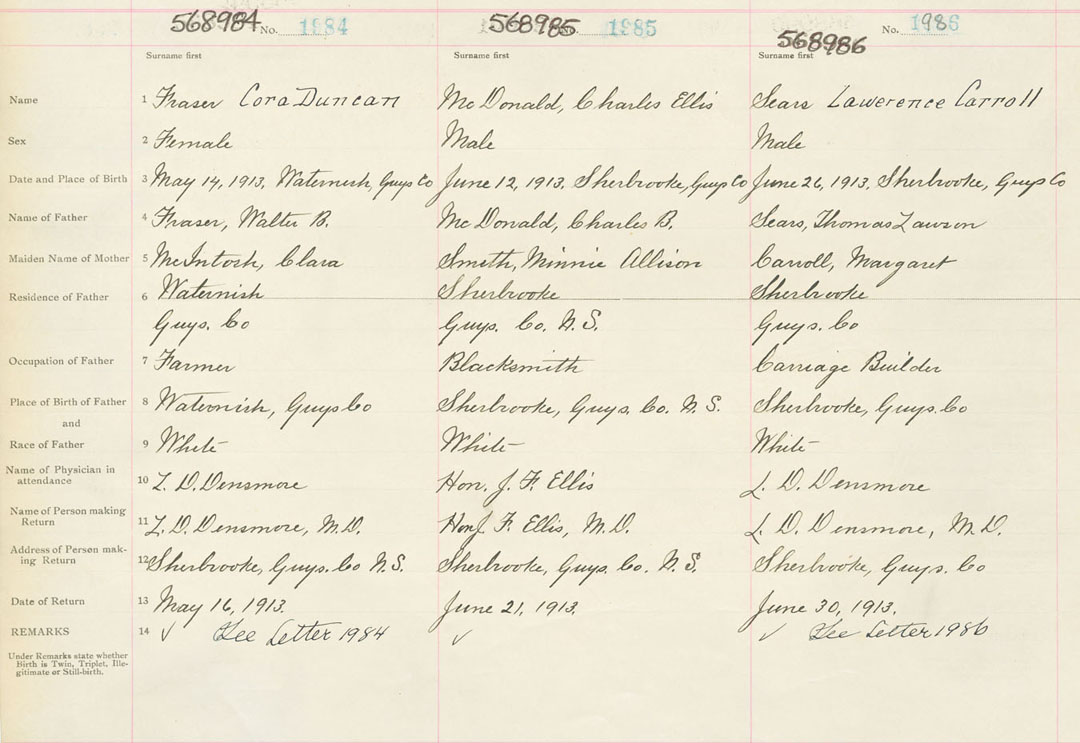 568984 No. 1984 568985 No. 1985 568986 No. 1986
Surname first Surname first Surname first
Name 1 Fraser Cora Duncan McDonald, Charles Ellis Sears Lawerence Carroll
Sex 2 Female Male Male
Date and Place of Birth 3 May 14, 1913, Waternish, Guys Co June 12, 1913, Sherbrooke, Guys Co June 26, 1913, Sherbrooke, Guys Co
Name of Father 4 Fraser, Walter B. McDonald, Charles B. Sears, Thomas Lawson
Maiden Name of Mother 5 McIntosh, Clara Smith, Minnie Allison Carroll, Margaret
Residence of Father 6 Waternish Sherbrooke Sherbrooke
Guys. Co Guys. Co. N.S. Guys. Co
Occupation of Father 7 Farmer Blacksmith Carriage Builder
Place of Birth of Father 8 Waternish, Guys Co Sherbrooke, Guys. Co. N.S. Sherbrooke, Guys. Co
and
Race of Father 9 White White White
Name of Physician in
attendance 10 L. D. Densmore Hon. J. F. Ellis L. D. Densmore
Name of Person making
Return 11 L. D. Densmore, M.D. Hon J. F. Ellis, M.D. L. D. Densmore, M.D.
Address of Person mak-
ing Return 12 Sherbrooke, Guys. Co N.S. Sherbrooke, Guys. Co. N.S. Sherbrooke, Guys. Co
Date of Return 13 May 16, 1913. June 21, 1913. June 30, 1913.
REMARKS 14 ✓ See Letter 1984 ✓ ✓ See Letter 1986
Under Remarks state whether
Birth is Twin, Triplet, Ille-
gitimate or Still-birth.